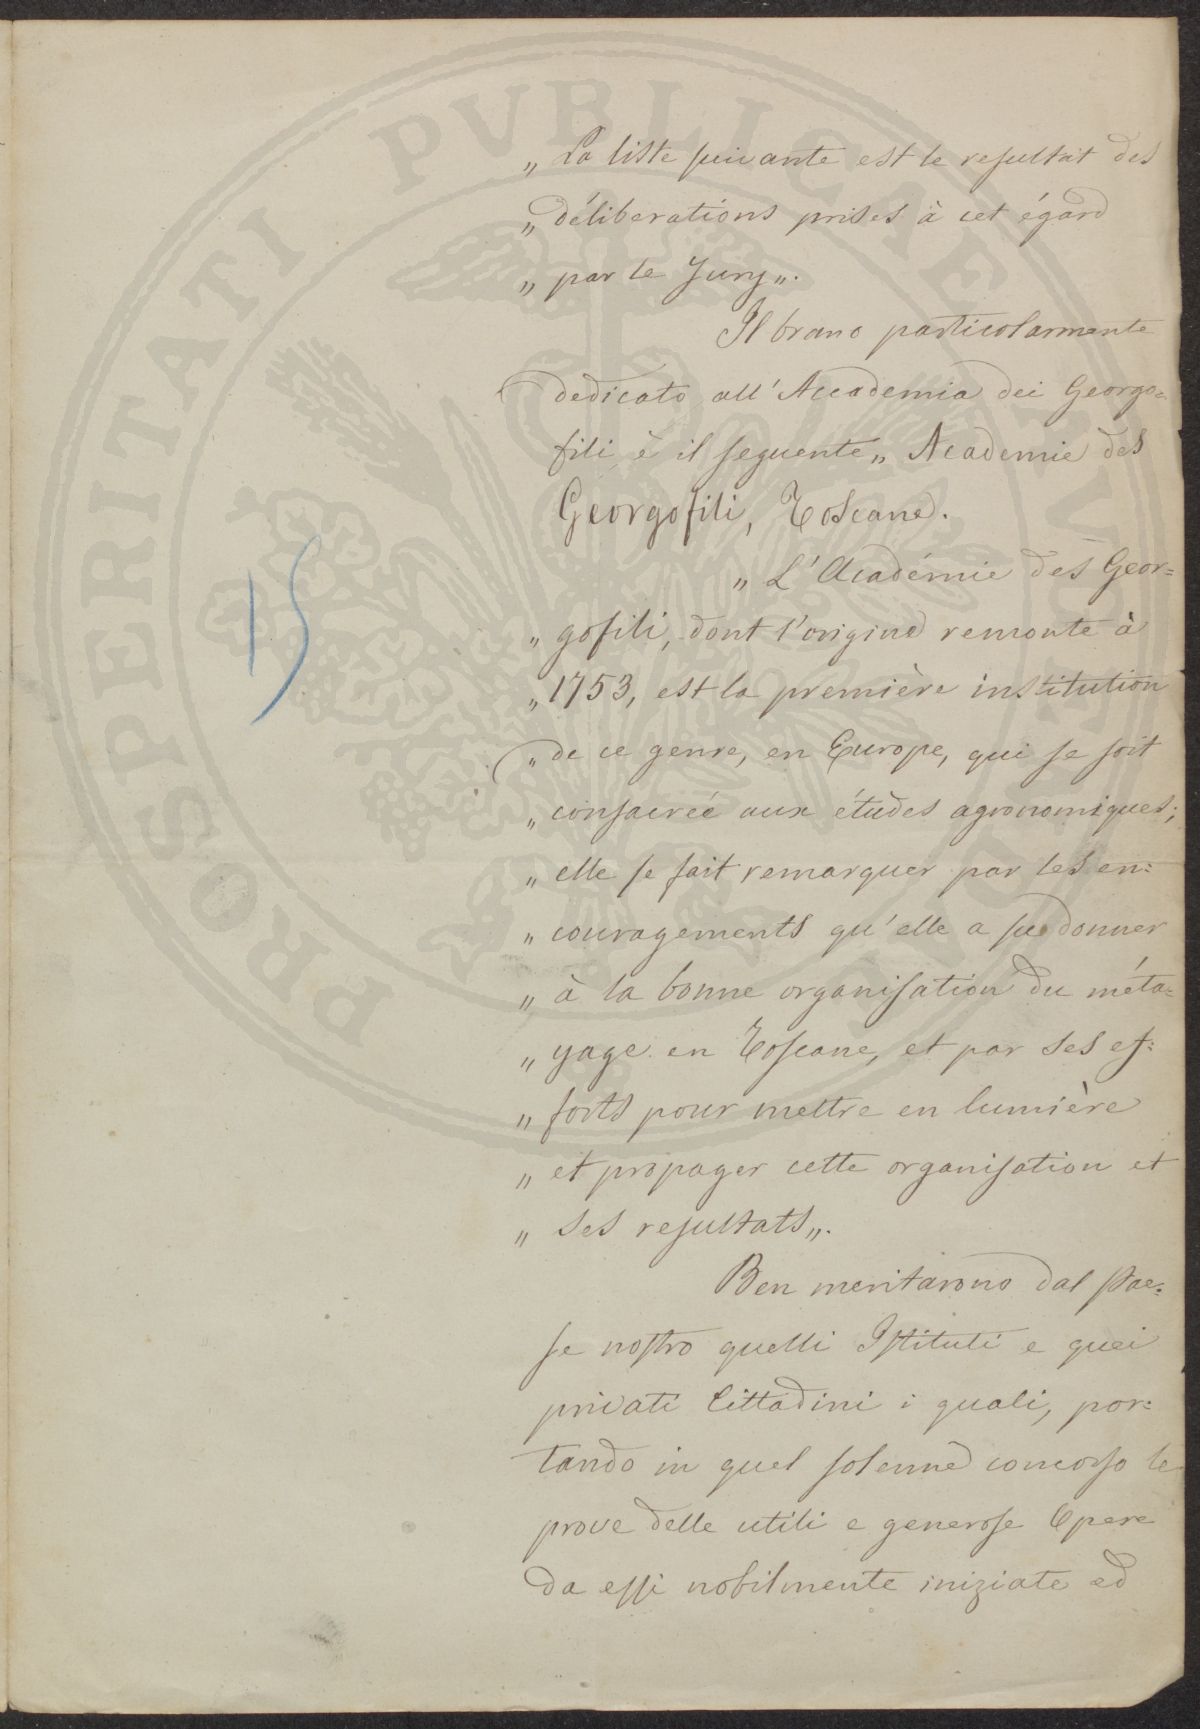 „ La liste suivante est le resultat des
„ déliberations prises à cet égard
„ par le Jury „.
Il brano particolarmente
dedicato all' Accademia dei Georgo=
fili è il seguente „ Academie des
Georgofili, Toscane.
„ L' Académie des Geor=
„ gofili, dont l'origine remonte à
„ 1753, est la première institution
„ de ce genre, en Europe, qui se soit
„ consacrée aux études agronomiques;
„ elle se fait remarquer par les en=
„ couragements qu' elle a su donner
„ à la bonne organisation du méta=
„ yage en Toscane, et par ses ef=
„ forts pour mettre en lumière
„ et propager cette organisation et
„ ses resultats „.
Ben meritarono dal Pae=
se nostro quelli Istituti e quei
privati Cittadini i quali, por=
tando in quel solenne concorso le
prove delle utili e generose Opere
da essi nobilmente iniziate ed
15
PROSPERITATI PVBLICAE AVGENDAE